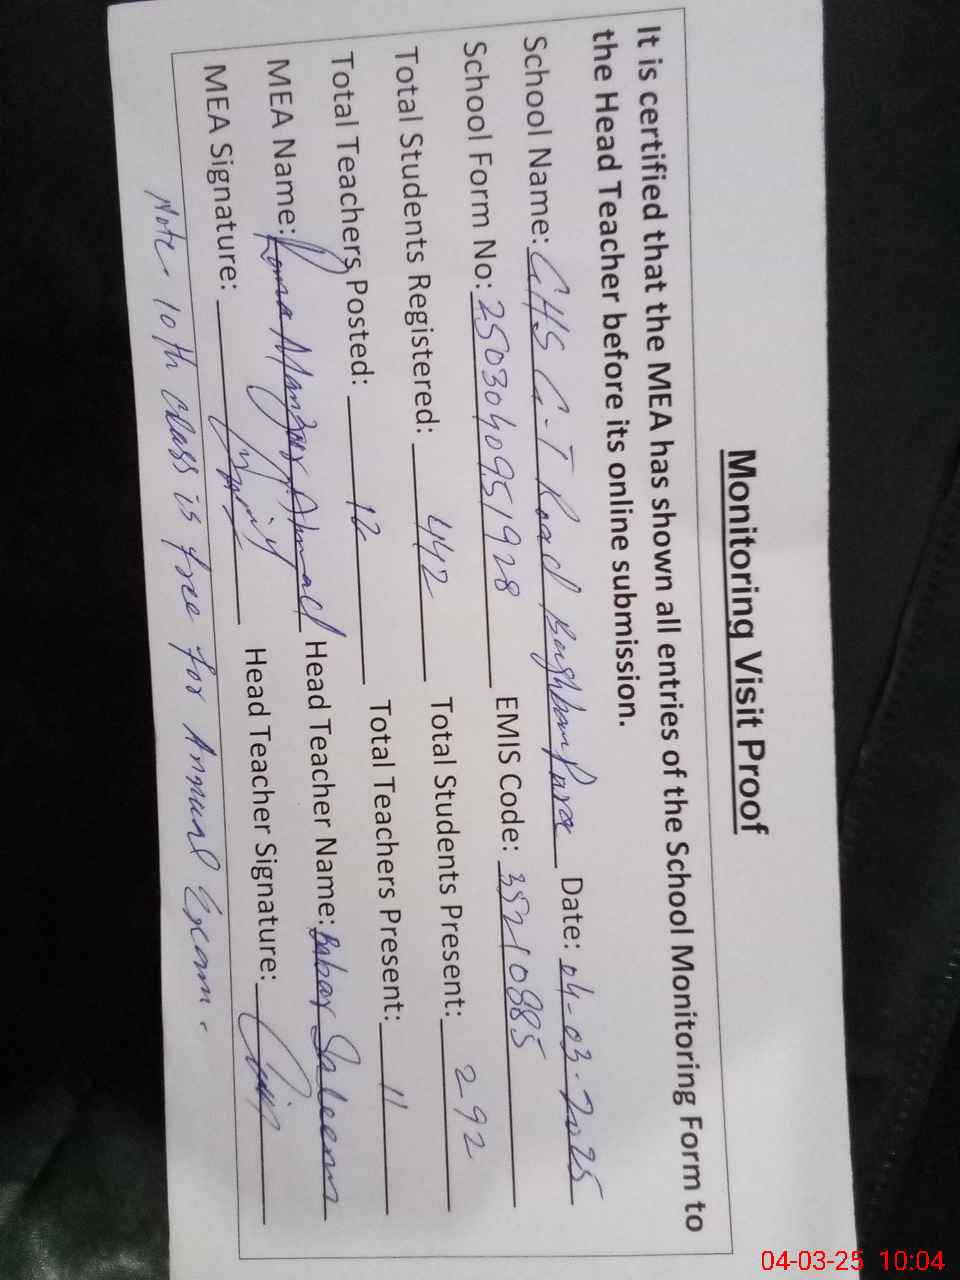 Monitoring Visit Proof
It is certified that the MEA has shown all entries of the School Monitoring Form to
the Head Teacher before its online submission.
School Name: GHS G-T Road Baghbanpura Date: 04-03-2025
School Form No: 2503040951928 EMIS Code: 35210885
Total Students Registered: 442 Total Students Present: 292
Total Teachers Posted: 12 Total Teachers Present: 11
MEA Name: Rana Manzoor Ahmad Head Teacher Name: Babar Saleem
MEA Signature: Head Teacher Signature:
Note. 10th class is free for Annual Exam.
04-03-25 10:04